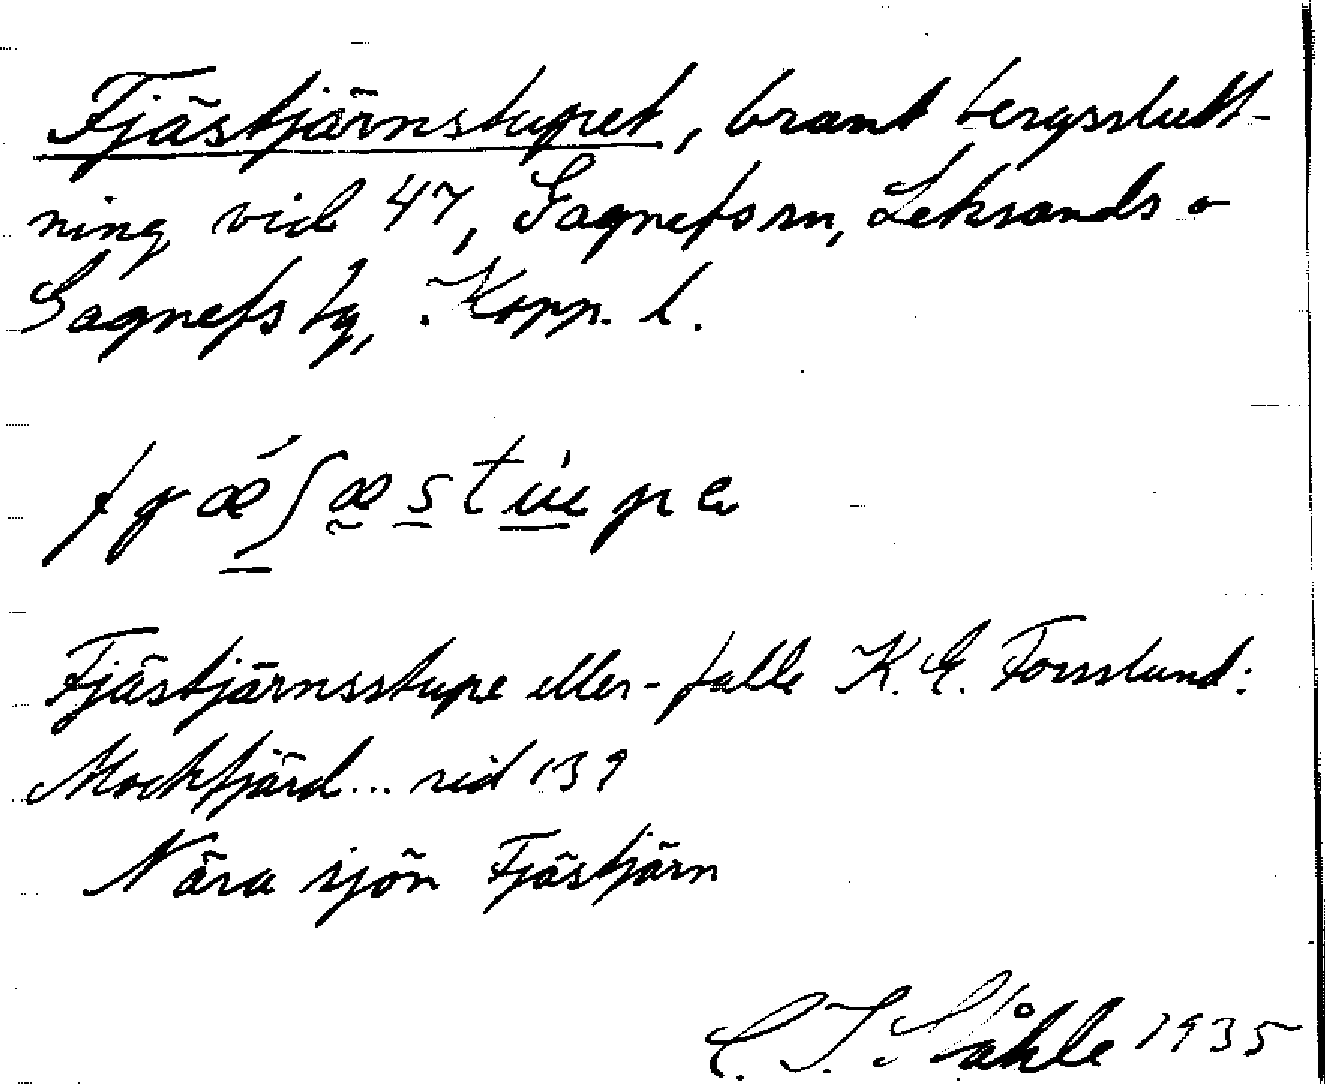 Fjästjärnstupet, brant bergsslutt-
ning vid 47, Gagnefs sn, Leksands o
Gagnefs tg, Kopp. l.
Fjästjärnsstupe eller -falle K. E. Forsslund:
Mockfjärd... sid 139
Nära sjön Fjästjärn
C. I. Ståhle 1935